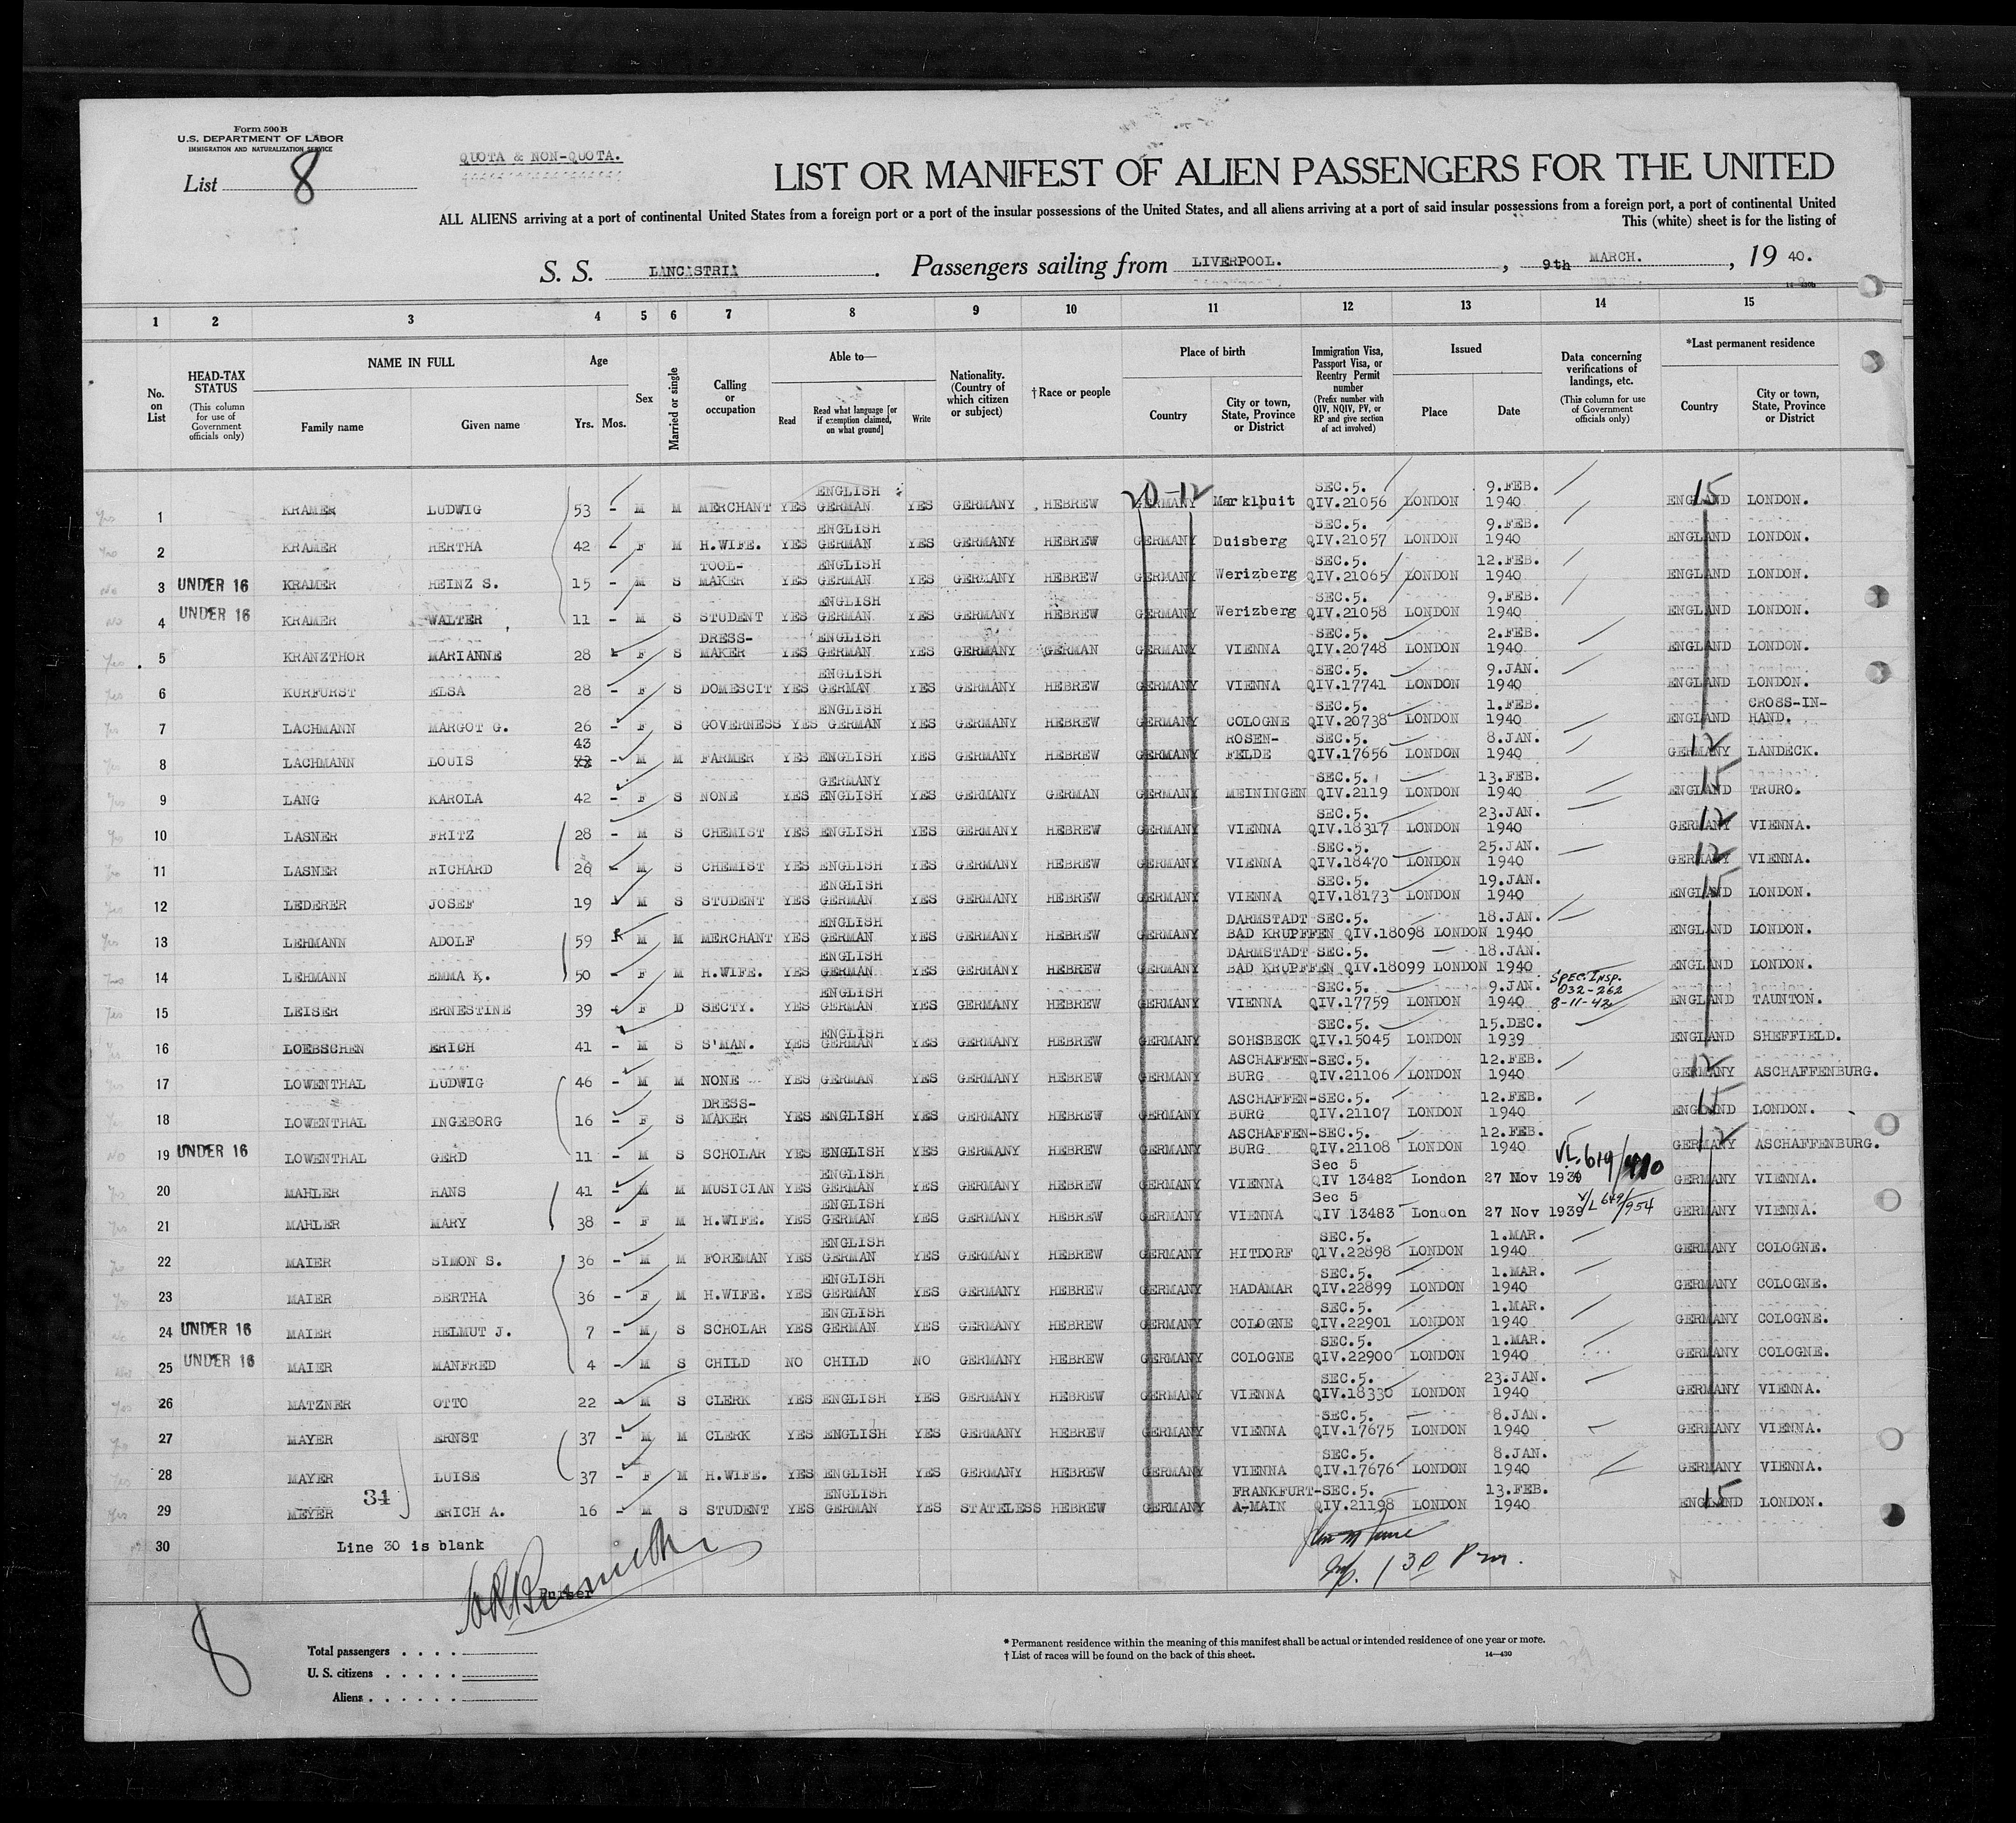 Form 500 B
U.S. DEPARTMENT OF LABOR
IMMIGRATION AND NATURALIZATION SERVICE
List 8
QUOTA & NON-QUOTA.
LIST OR MANIFEST OF ALIEN PASSENGERS FOR THE UNITED
ALL ALIENS arriving at a port of continental United States from a foreign port or a port of the insular possessions of the United States, and all aliens arriving at a port of said insular possessions from a foreign port, a port of continental United
This (white) sheet is for the listing of
S. S. LANCASTRIA. Passengers sailing from LIVERPOOL., 9th MARCH., 19 40.
1 2 3 4 5 6 7 8 9 10 11 12 13 14 15
No. on List
HEAD-TAX STATUS (This column for use of Government officials only)
NAME IN FULL Family name Given name
Age Yrs. Mos.
Sex
Married or single
Calling or occupation
Able to— Read Read what language [or if exemption claimed, on what ground] Write
Nationality. (Country of which citizen or subject)
† Race or people
Place of birth Country City or town, State, Province or District
Immigration Visa, Passport Visa, or Reentry Permit number (Prefix number with QIV, NQIV, PV, or RP and give section of act involved)
Issued Place Date
Data concerning verifications of landings, etc. (This column for use of Government officials only)
*Last permanent residence Country City or town, State, Province or District
20-12 15
1 KRAMER LUDWIG 53 - M M MERCHANT YES ENGLISH GERMAN YES GERMANY HEBREW GERMANY Marklbuit SEC.5. QIV.21056 LONDON 9.FEB. 1940 ENGLAND LONDON.
2 KRAMER HERTHA 42 - F M H.WIFE. YES ENGLISH GERMAN YES GERMANY HEBREW GERMANY Duisberg SEC.5. QIV.21057 LONDON 9.FEB. 1940 ENGLAND LONDON.
3 UNDER 16 KRAMER HEINZ S. 15 - M S TOOL-MAKER YES ENGLISH GERMAN YES GERMANY HEBREW GERMANY Werizberg SEC.5. QIV.21065 LONDON 12.FEB. 1940 ENGLAND LONDON.
4 UNDER 16 KRAMER WALTER 11 - M S STUDENT YES ENGLISH GERMAN YES GERMANY HEBREW GERMANY Werizberg SEC.5. QIV.21058 LONDON 9.FEB. 1940 ENGLAND LONDON.
5 KRANZTHOR MARIANNE 28 - F S DRESS-MAKER YES ENGLISH GERMAN YES GERMANY GERMAN GERMANY VIENNA SEC.5. QIV.20748 LONDON 2.FEB. 1940 ENGLAND LONDON.
6 KURFURST ELSA 28 - F S DOMESCIT YES ENGLISH GERMAN YES GERMANY HEBREW GERMANY VIENNA SEC.5. QIV.17741 LONDON 9.JAN. 1940 ENGLAND LONDON.
7 LACHMANN MARGOT G. 26 - F S GOVERNESS YES ENGLISH GERMAN YES GERMANY HEBREW GERMANY COLOGNE SEC.5. QIV.20738 LONDON 1.FEB. 1940 ENGLAND CROSS-IN-HAND.
8 LACHMANN LOUIS 43 - M M FARMER YES ENGLISH YES GERMANY HEBREW GERMANY ROSEN-FELDE SEC.5. QIV.17656 LONDON 8.JAN. 1940 GERMANY 12 LANDECK.
9 LANG KAROLA 42 - F S NONE YES GERMANY ENGLISH YES GERMANY GERMAN GERMANY MEININGEN SEC.5. QIV.2119 LONDON 13.FEB. 1940 ENGLAND 15 TRURO.
10 LASNER FRITZ 28 - M S CHEMIST YES ENGLISH YES GERMANY HEBREW GERMANY VIENNA SEC.5. QIV.18317 LONDON 23.JAN. 1940 GERMANY 12 VIENNA.
11 LASNER RICHARD 26 - M S CHEMIST YES ENGLISH YES GERMANY HEBREW GERMANY VIENNA SEC.5. QIV.18470 LONDON 25.JAN. 1940 GERMANY 12 VIENNA.
12 LEDERER JOSEF 19 - M S STUDENT YES ENGLISH GERMAN YES GERMANY HEBREW GERMANY VIENNA SEC.5. QIV.18173 LONDON 19.JAN. 1940 ENGLAND 15 LONDON.
13 LEHMANN ADOLF 59 - M M MERCHANT YES ENGLISH GERMAN YES GERMANY HEBREW GERMANY DARMSTADT BAD KRUPFFEN SEC.5. QIV.18098 LONDON 18.JAN. 1940 ENGLAND LONDON.
14 LEHMANN EMMA K. 50 - F M H.WIFE. YES ENGLISH GERMAN YES GERMANY HEBREW GERMANY DARMSTADT BAD KRUPFFEN SEC.5. QIV.18099 LONDON 18.JAN. 1940 ENGLAND LONDON.
15 LEISER ERNESTINE 39 - F D SECTY. YES ENGLISH GERMAN YES GERMANY HEBREW GERMANY VIENNA SEC.5. QIV.17759 LONDON 9.JAN. 1940 SPEC. INSP. 032-262 8-11-42 ENGLAND TAUNTON.
16 LOEBSCHEN ERICH 41 - M S S'MAN. YES ENGLISH GERMAN YES GERMANY HEBREW GERMANY SOHSBECK SEC.5. QIV.15045 LONDON 15.DEC. 1939 ENGLAND SHEFFIELD.
17 LOWENTHAL LUDWIG 46 - M M NONE YES GERMAN YES GERMANY HEBREW GERMANY ASCHAFFEN-BURG SEC.5. QIV.21106 LONDON 12.FEB. 1940 GERMANY 12 ASCHAFFENBURG.
18 LOWENTHAL INGEBORG 16 - F S DRESS-MAKER YES ENGLISH YES GERMANY HEBREW GERMANY ASCHAFFEN-BURG SEC.5. QIV.21107 LONDON 12.FEB. 1940 ENGLAND 15 LONDON.
19 UNDER 16 LOWENTHAL GERD 11 - M S SCHOLAR YES ENGLISH YES GERMANY HEBREW GERMANY ASCHAFFEN-BURG SEC.5. QIV.21108 LONDON 12.FEB. 1940 GERMANY 12 ASCHAFFENBURG.
20 MAHLER HANS 41 - M M MUSICIAN YES ENGLISH GERMAN YES GERMANY HEBREW GERMANY VIENNA Sec 5 QIV 13482 London 27 Nov 1939 GERMANY VIENNA.
21 MAHLER MARY 38 - F M H.WIFE. YES ENGLISH GERMAN YES GERMANY HEBREW GERMANY VIENNA Sec 5 QIV 13483 London 27 Nov 1939 V/L 649/954 GERMANY VIENNA.
22 MAIER SIMON S. 36 - M M FOREMAN YES ENGLISH GERMAN YES GERMANY HEBREW GERMANY HITDORF SEC.5. QIV.22898 LONDON 1.MAR. 1940 GERMANY COLOGNE.
23 MAIER BERTHA 36 - F M H.WIFE. YES ENGLISH GERMAN YES GERMANY HEBREW GERMANY HADAMAR SEC.5. QIV.22899 LONDON 1.MAR. 1940 GERMANY COLOGNE.
24 UNDER 16 MAIER HELMUT J. 7 - M S SCHOLAR YES ENGLISH GERMAN YES GERMANY HEBREW GERMANY COLOGNE SEC.5. QIV.22901 LONDON 1.MAR. 1940 GERMANY COLOGNE.
25 UNDER 16 MAIER MANFRED 4 - M S CHILD NO CHILD NO GERMANY HEBREW GERMANY COLOGNE SEC.5. QIV.22900 LONDON 1.MAR. 1940 GERMANY COLOGNE.
26 MATZNER OTTO 22 - M S CLERK YES ENGLISH YES GERMANY HEBREW GERMANY VIENNA SEC.5. QIV.18330 LONDON 23.JAN. 1940 GERMANY VIENNA.
27 MAYER ERNST 37 - M M CLERK YES ENGLISH YES GERMANY HEBREW GERMANY VIENNA SEC.5. QIV.17675 LONDON 8.JAN. 1940 GERMANY VIENNA.
28 MAYER LUISE 37 - F M H.WIFE. YES ENGLISH YES GERMANY HEBREW GERMANY VIENNA SEC.5. QIV.17676 LONDON 8.JAN. 1940 GERMANY VIENNA.
29 MEYER 34 ERICH A. 16 - M S STUDENT YES ENGLISH GERMAN YES STATELESS HEBREW GERMANY FRANKFURT-A-MAIN SEC.5. QIV.21198 LONDON 13.FEB. 1940 ENGLAND 15 LONDON.
30 Line 30 is blank
Purser
1 30 Pm.
8
Total passengers . . . .
U. S. citizens . . . . .
Aliens . . . . . .
* Permanent residence within the meaning of this manifest shall be actual or intended residence of one year or more.
† List of races will be found on the back of this sheet.
14—430